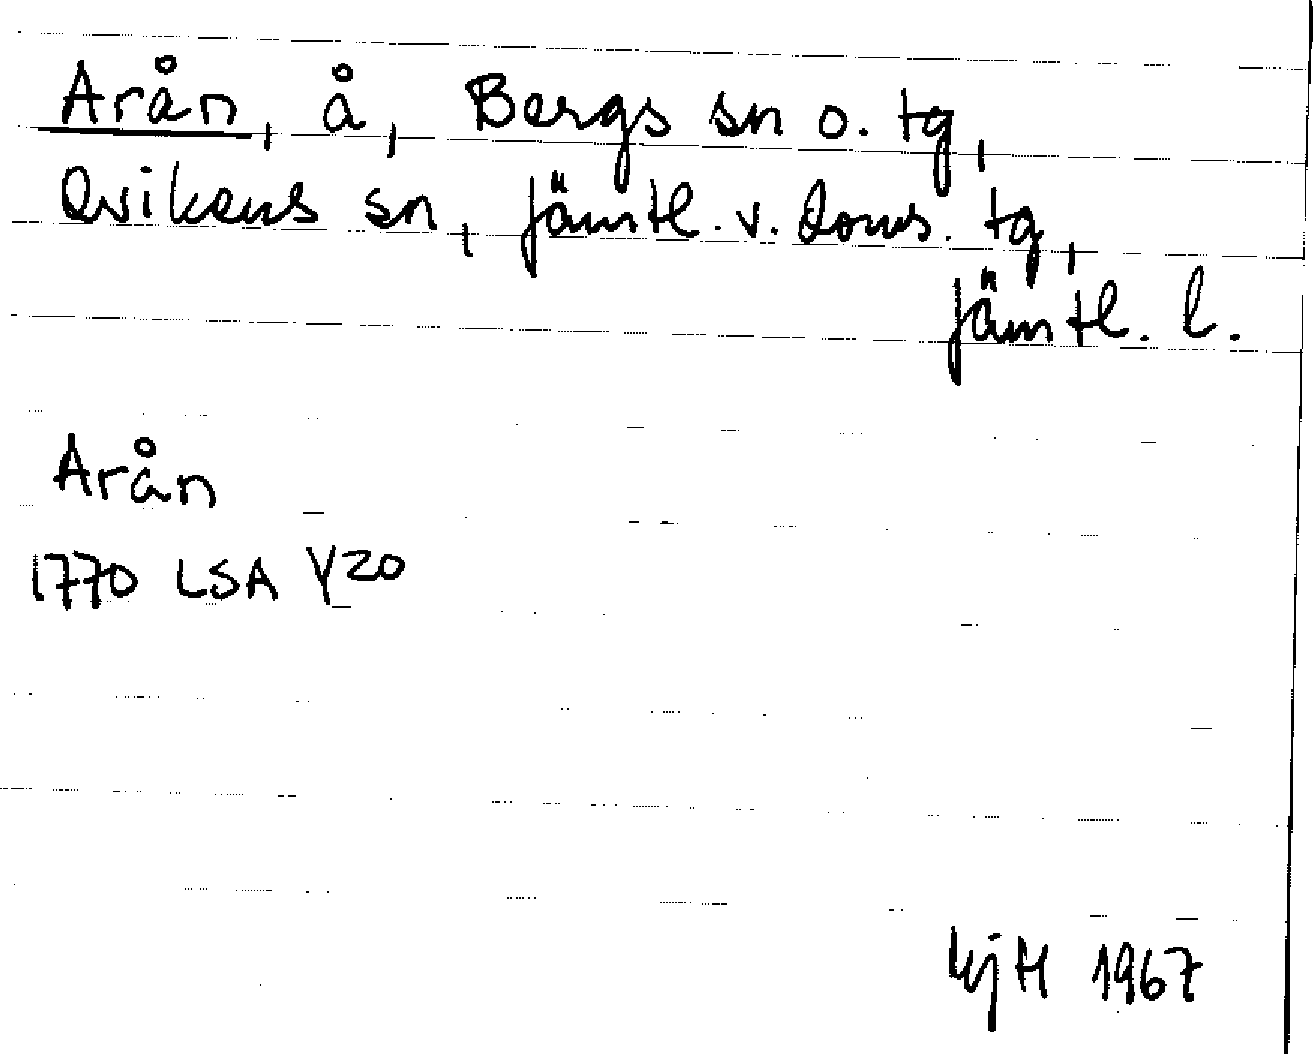 Arån, å, Bergs sn o. tg,
Ovikens sn, Jämtl. v. doms. tg,
Jämtl. l.
Arån
1770 LSA Y20
HjH 1967